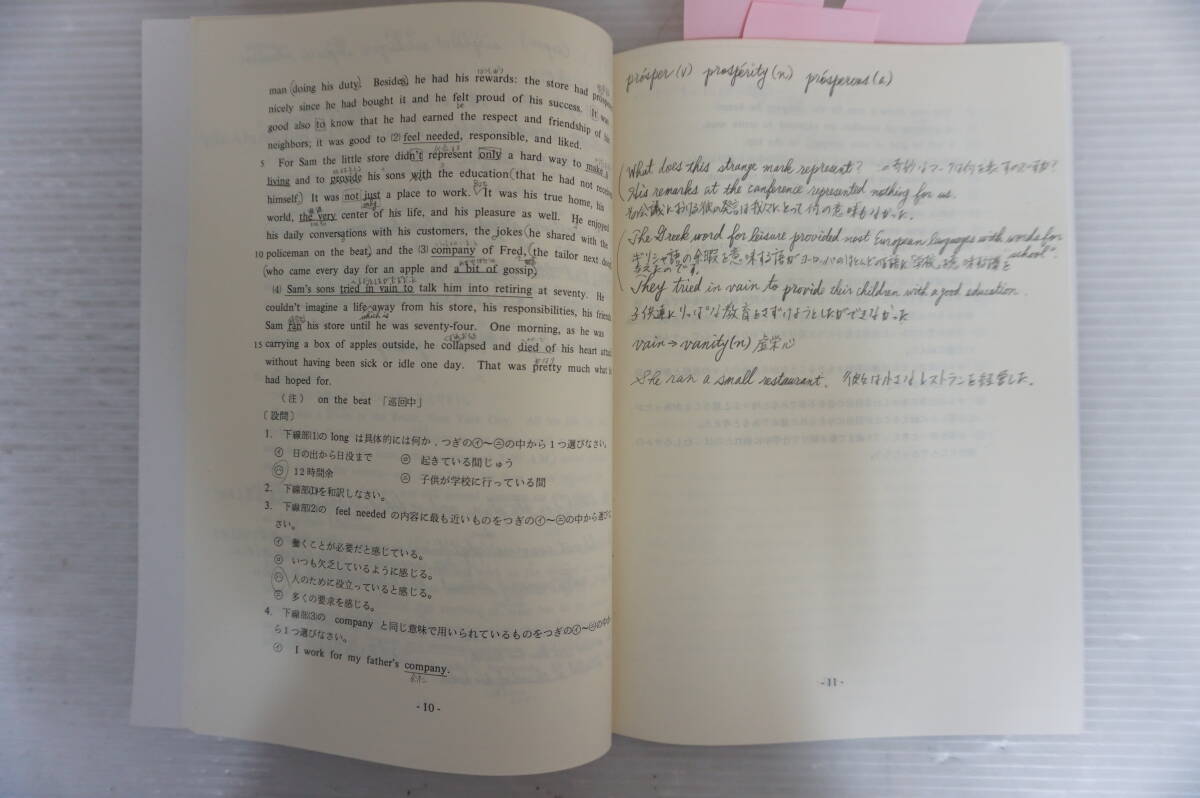 man (doing his duty. Besides, he had his rewards: the store had prospered
nicely since he had bought it and he felt proud of his success. It was
good also to know that he had earned the respect and friendship of his
neighbors; it was good to (2) feel needed, responsible, and liked.
5 For Sam the little store didn't represent only a hard way to make a
living and to provide his sons with the education (that he had not received
himself.) It was not just a place to work. It was his true home, his
world, the very center of his life, and his pleasure as well. He enjoyed
his daily conversations with his customers, the jokes (he shared with the
10 policeman on the beat,) and the (3) company of Fred, (the tailor next door,
(who came every day for an apple and a bit of gossip.)
(4) Sam's sons tried in vain to talk him into retiring at seventy. He
couldn't imagine a life away from his store, his responsibilities, his friends.
which is
Sam ran his store until he was seventy-four. One morning, as he was
15 carrying a box of apples outside, he collapsed and died of his heart attack
without having been sick or idle one day. That was pretty much what he
had hoped for.
(注) on the beat 「巡回中」
〔設問〕
1. 下線部(1)の long は具体的には何か,つぎの㋑~㋥の中から1つ選びなさい。
㋑ 日の出から日没まで ㋺ 起きている間じゅう
㋩ 12時間余 ㋥ 子供が学校に行っている間
2. 下線部(1)を和訳しなさい。
3. 下線部(2)の feel needed の内容に最も近いものをつぎの㋑~㋥の中から選びな
さい。
㋑ 働くことが必要だと感じている。
㋺ いつも欠乏しているように感じる。
㋩ 人のために役立っていると感じる。
㋥ 多くの要求を感じる。
4. 下線部(3)の company と同じ意味で用いられているものをつぎの㋑~㋥の中か
ら1つ選びなさい。
㋑ I work for my father's company.
会社
- 10 -
prósper (v) prospérity (n) prósperous (a)
What does this strange mark represent? この奇妙なマークは何を表すのですか?
His remarks at the conference represented nothing for us.
その会議における彼の発言は我々にとって何の意味もなかった。
The Greek word for leisure provided most European languages with words for
"school".
ギリシャ語の余暇を意味する語がヨーロッパのほとんどの言語に「学校」を意味する語を
与えたのです。
They tried in vain to provide their children with a good education.
子供達にりっぱな教育をさずけようとしたができなかった
vain → vanity (n) 虚栄心
She ran a small restaurant. 彼女は小さなレストランを経営した。
- 11 -